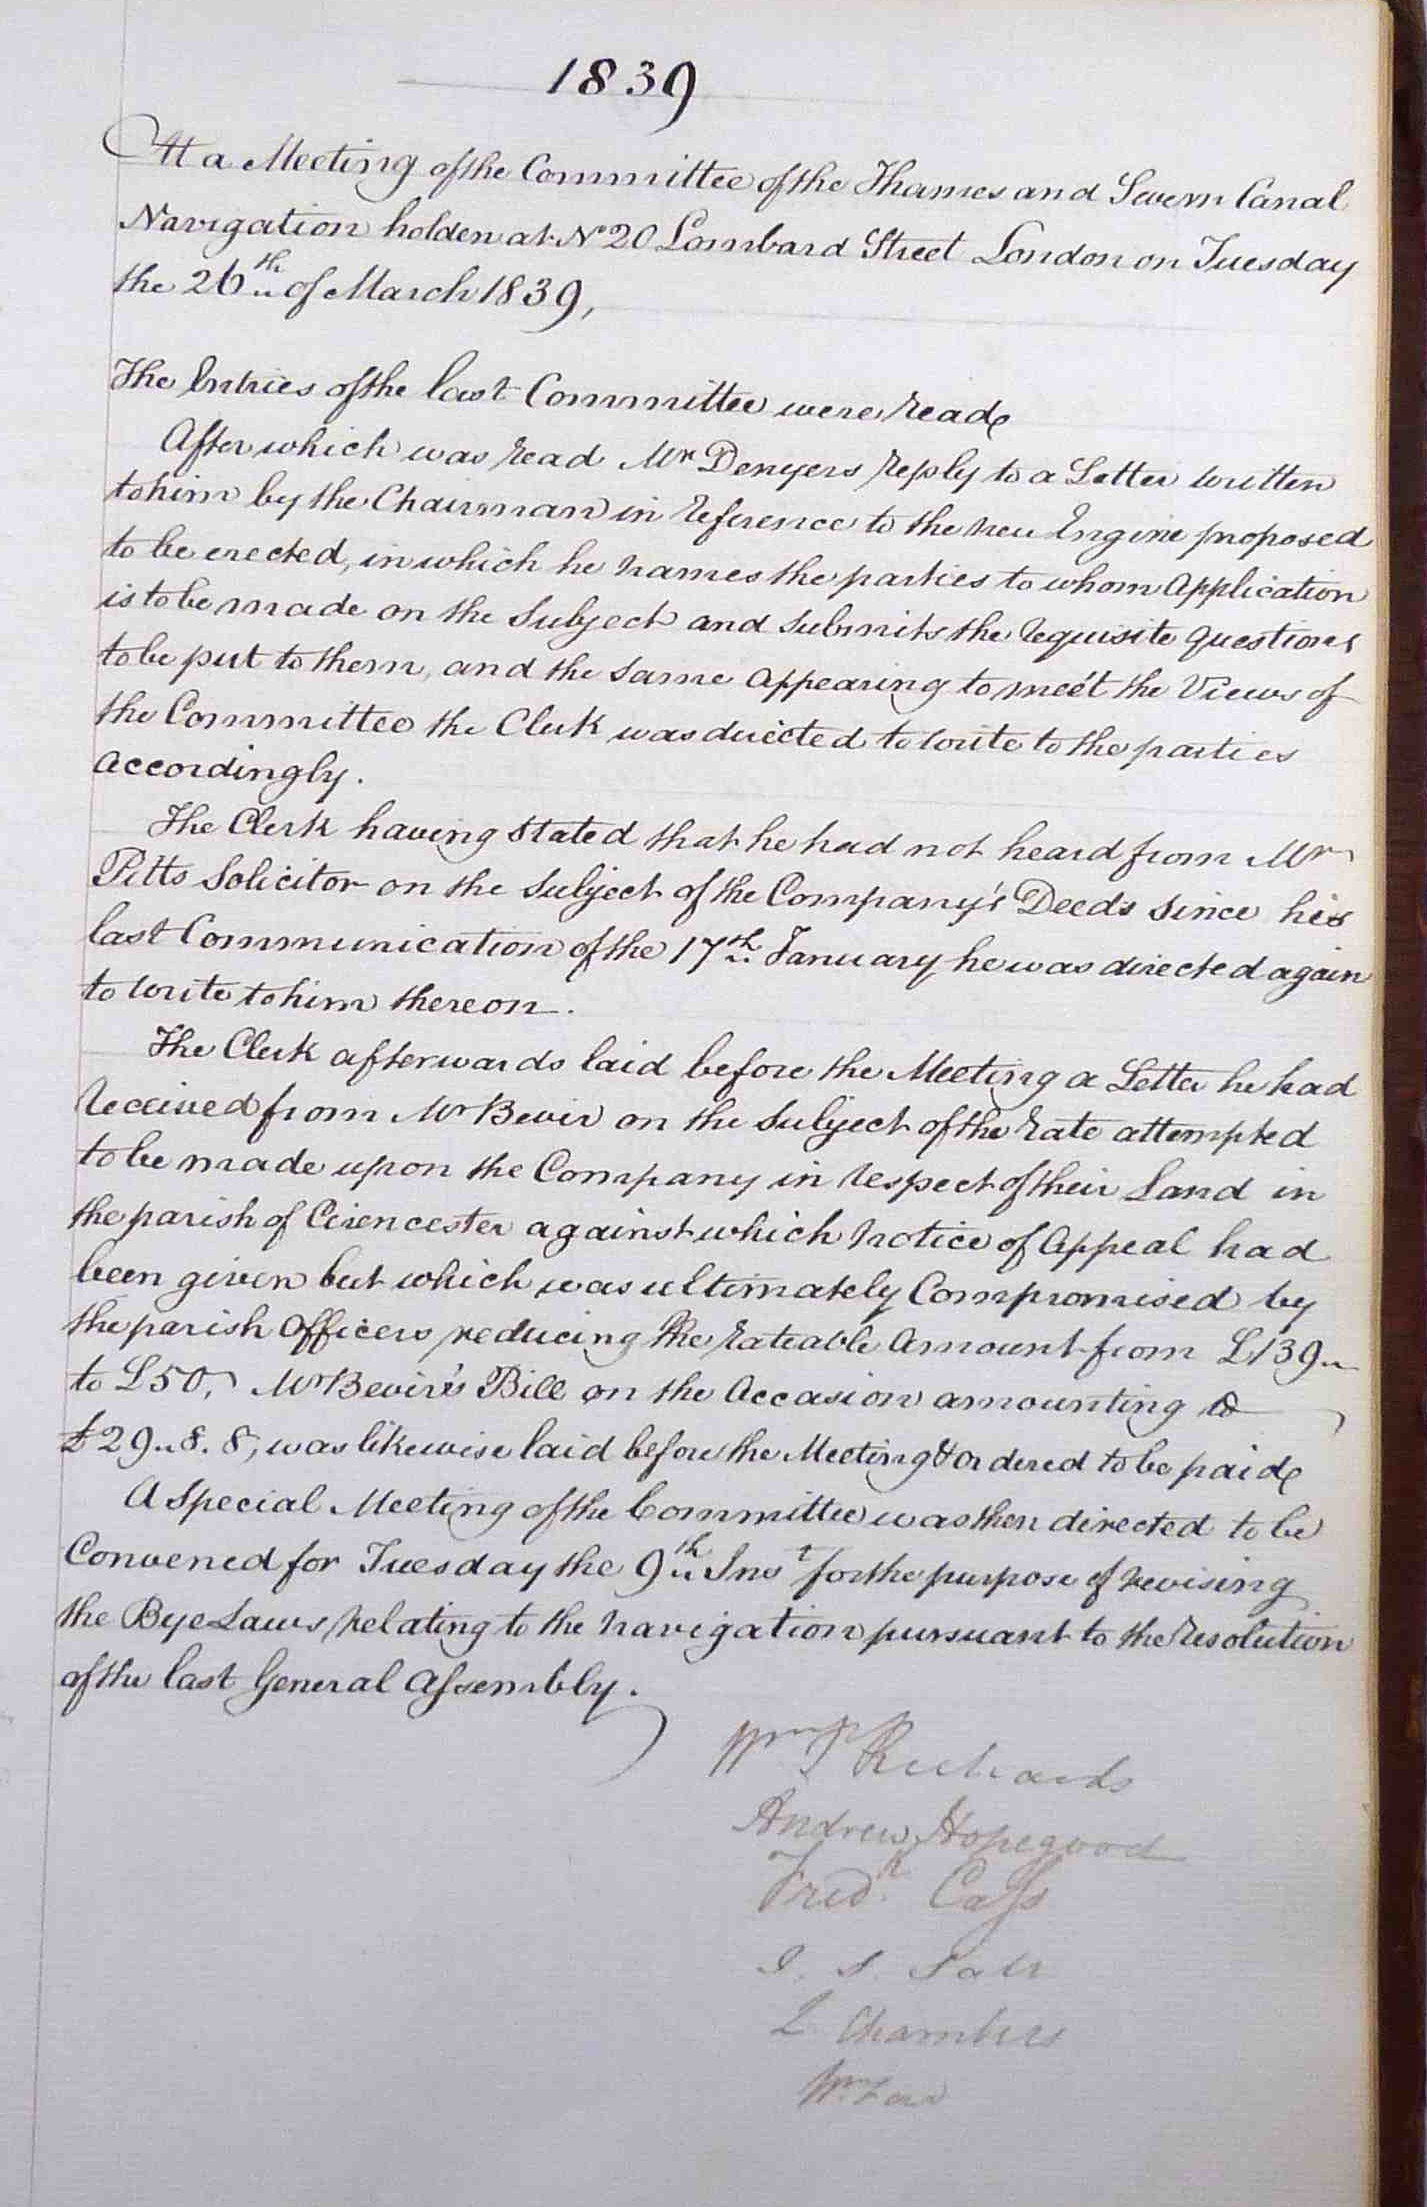 1839
At a Meeting of the Committee of the Thames and Severn Canal
Navigation holden at No 20 Lombard Street London on Tuesday
the 26th of March 1839,
The Entries of the last Committee were read
After which was read Mr Denyers reply to a Letter written
to him by the Chairman in reference to the new Engine proposed
to be erected, in which he names the parties to whom Application
is to be made on the Subject and Submits the requisite questions
to be put to them, and the Same Appearing to meet the Views of
the Committee the Clerk was directed to write to the parties
Accordingly.
The Clerk having Stated that he had not heard from Mr
Pitts Solicitor on the Subject of the Company's Deeds Since his
last Communication of the 17th January he was directed again
to write to him thereon.
The Clerk afterwards laid before the Meeting a Letter he had
received from Mr Bevir on the Subject of the rate attempted
to be made upon the Company in respect of their Land in
the parish of Cirencester against which notice of Appeal had
been given but which was ultimately Compromised by
the parish Officers reducing the rateable Amount from £139"
to £50, Mr Bevir's Bill on the Accasion amounting to
£29"8.8, was likewise laid before the Meeting & ordered to be paid
A Special Meeting of the Committee was then directed to be
Convened for Tuesday the 9th Inst for the purpose of revising
the Bye Laws relating to the navigation pursuant to the resolution
of the last General Assembly.
Wm P Richards
Andrew Hopegood
Fredk Cass
J. S. Salt
L Chambers
Wm